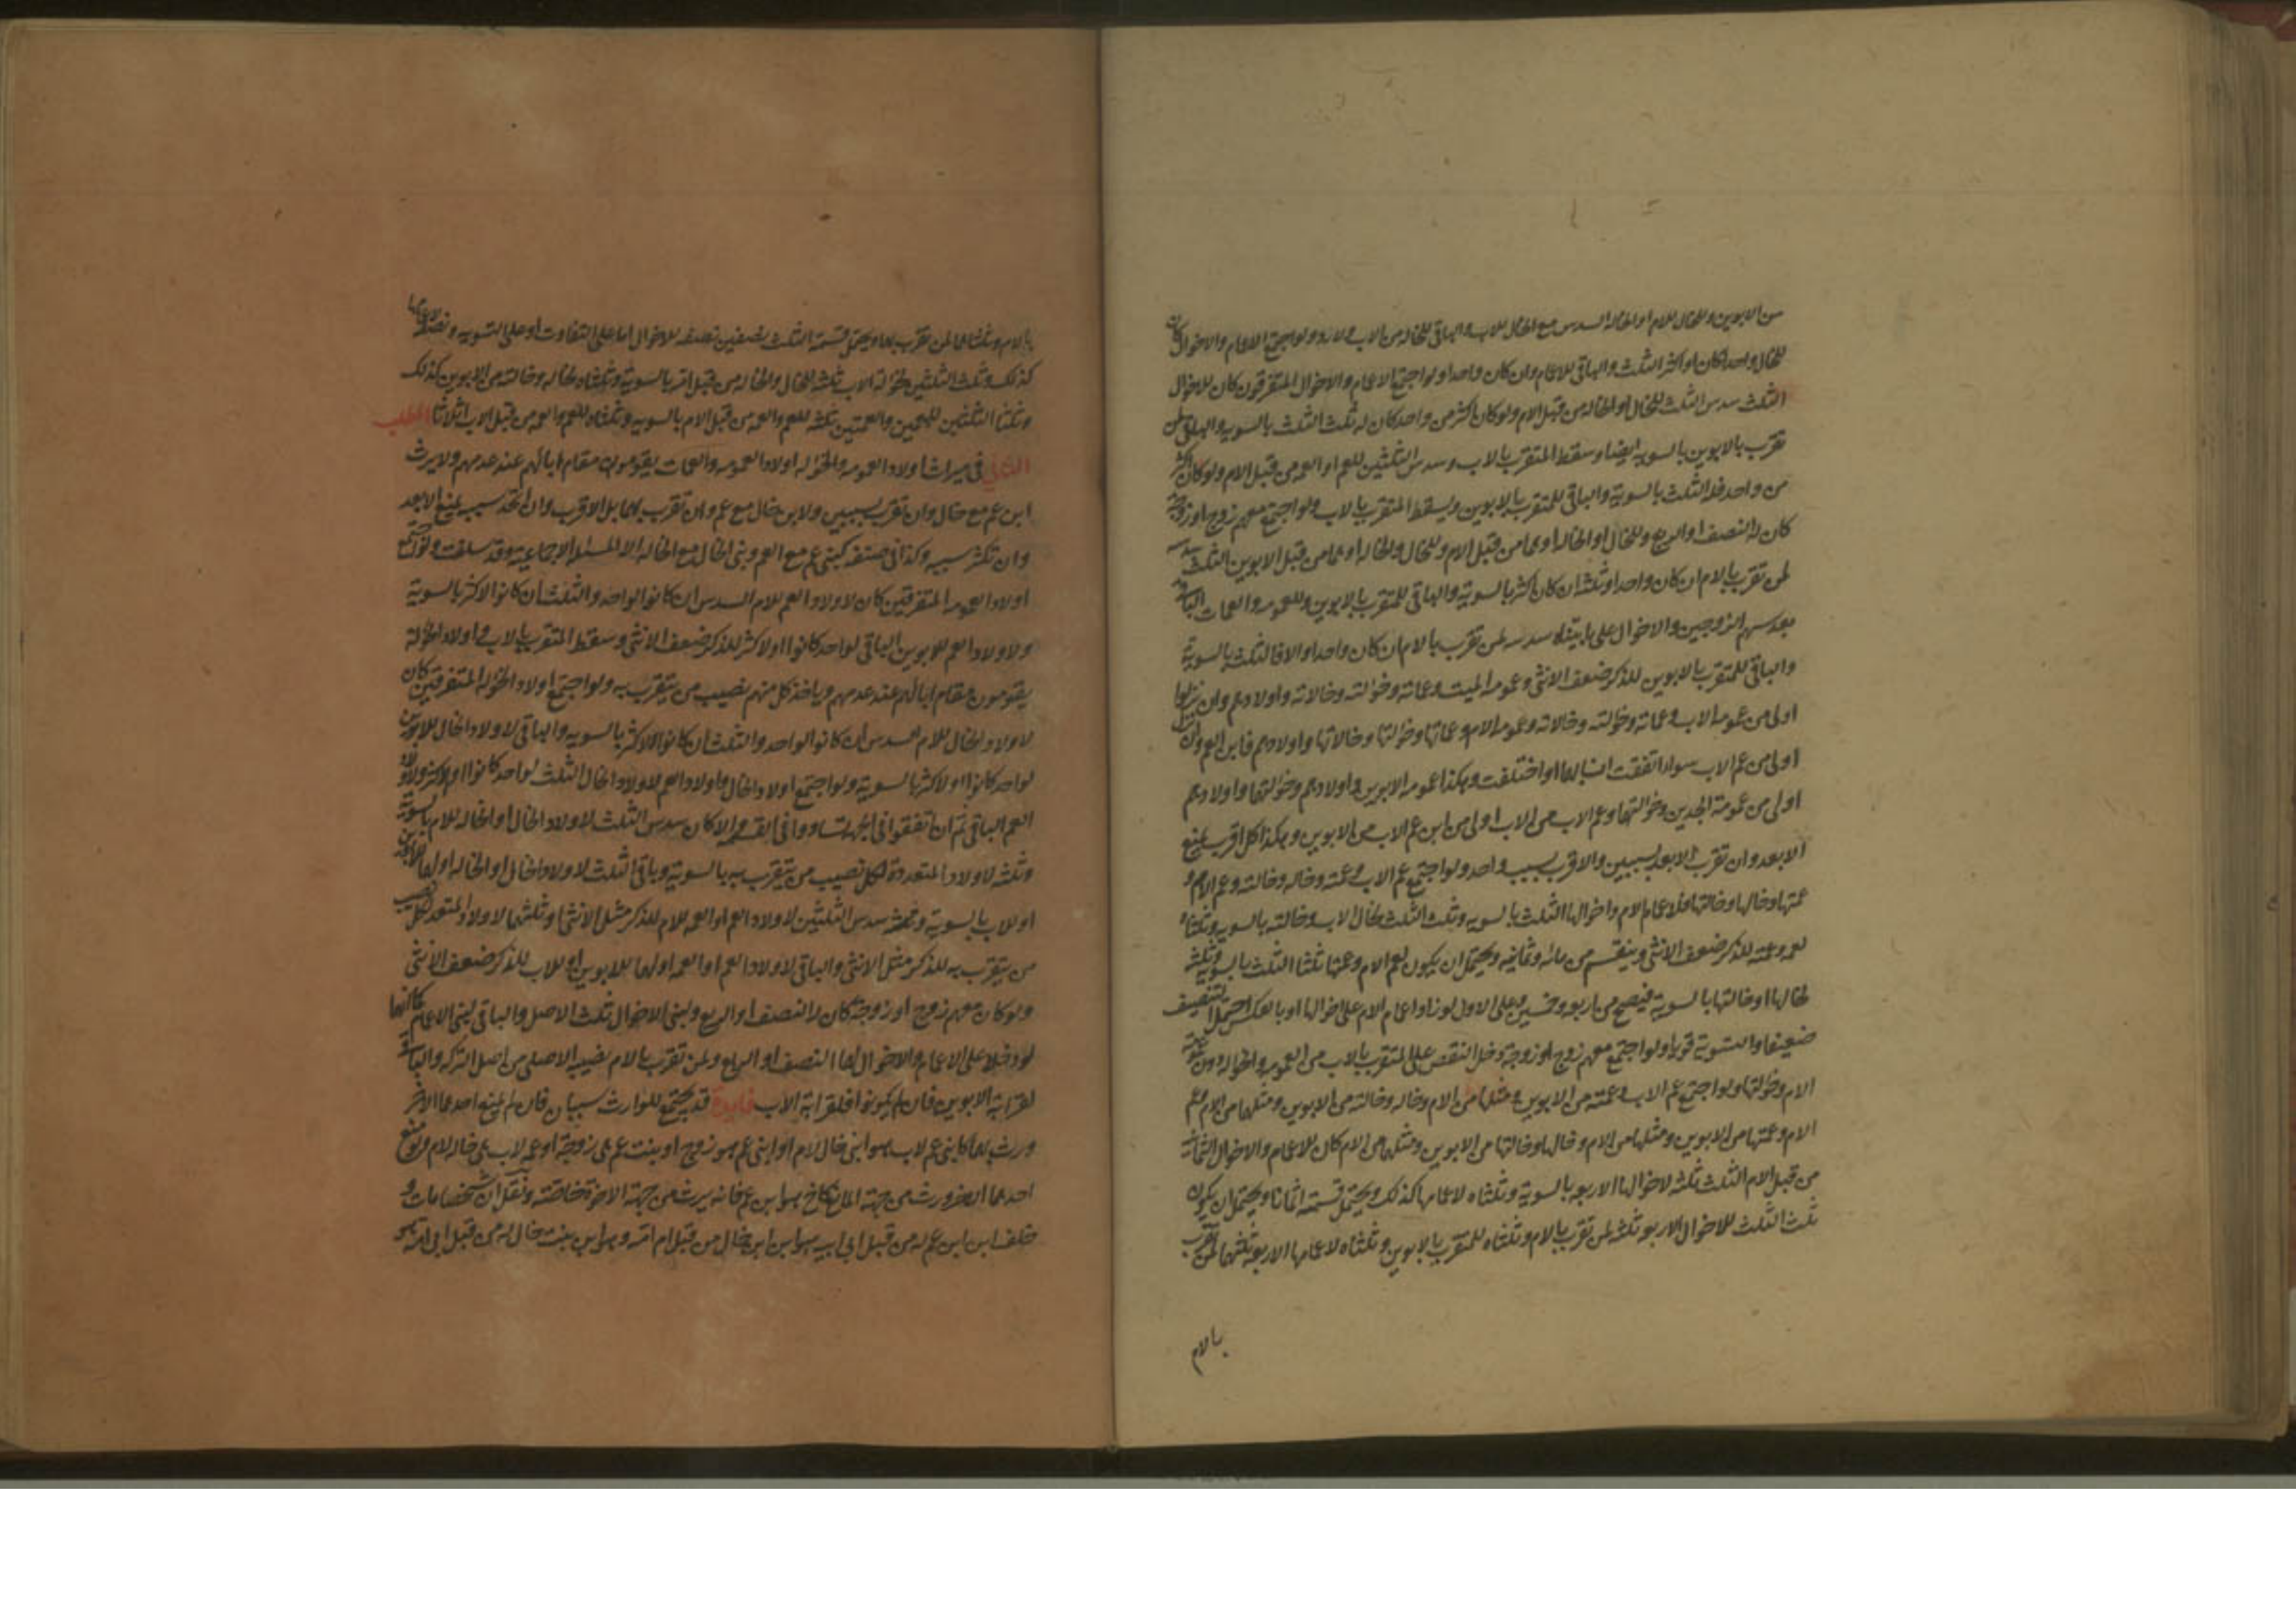 من الابوين وللخال للام او الخالة السدس مع الخال للاب والباقي للخالة من الاب ولا رد ولو اجتمع الاعمام والاخوال كان
للخال واحدا كان او اكثر الثلث والباقي للاعمام وان كان واحدا ولو اجتمع الاعمام والاخوال المتفرقون كان للاخوال
الثلث سدس الثلث للخال او الخالة من قبل الام ولو كان اكثر من واحد كان له ثلث الثلث بالسويه والباقي لمن
تقرب بالابوين بالسويه ايضا وسقط المتقرب بالاب وسدس الثلثين للعم او العمه من قبل الام ولو كان اكثر
من واحد فله الثلث بالسوية والباقي للمتقرب بالابوين ويسقط المتقرب بالاب ولو اجتمع معهم زوج او زوجة
كان له النصف او الربع وللخال او الخالة او هما من قبل الام وللخال والخالة او هما من قبل الابوين الثلث سدسه
لمن تقرب بالام ان كان واحدا وثلثه ان كان اكثر بالسوية والباقي للمتقرب بالابوين وللعمومه والعمات الباقي
بعد سهم الزوجين والاخوال على ما بيناه سدسه لمن تقرب بالام ان كان واحدا والا فالثلث بالسوية
والباقي للمتقرب بالابوين للذكر ضعف الانثى وعمومه الميت وعماته وخؤلته وخالاته واولادهم وان نزلوا
اولى من عمومه الاب وعماته وخؤلته وخالاته وعمومه الام وعماتها وخؤلتها وخالاتها واولادهم فابن العم وان نزل
اولى من عم الاب سواء اتفقت انسابهما او اختلفت وهكذا عمومه الابوين واولادهم وخؤلتهما واولادهم
اولى من عمومة الجدين وخؤلتهما وعم الاب من الاب اولى من ابن عم الاب من الابوين وهكذا كل اقرب يمنع
الابعد وان تقرب الابعد بسببين والاقرب بسبب واحد ولو اجتمع عم الاب وعمته وخاله وخالته وعم الام و
عمتها وخالها وخالتها فلاعمام الام واخوالها الثلث بالسويه وثلث الثلث لخال الاب وخالته بالسويه وثلثاه
لعمه وعمته للذكر ضعف الانثى وينقسم من مائه وثمانيه ويحتمل ان يكون لعم الام وعمتها ثلثا الثلث بالسويه وثلثه
لخالها وخالتها بالسوية فيصح من اربعه وخمسين وعلى الاول لو زاد اعمام الام على اخوالها او بالعكس احتمل التنصيف
ضعيفا والتسوية قويا ولو اجتمع معهم زوج او زوجة دخل النقص على المتقرب بالاب من العمومه والخؤله دون عمومة
الام وخؤلتها ولو اجتمع عم الاب وعمته من الابوين ومثلهما من الام وخاله وخالته من الابوين ومثلهما من الام وعم
الام وعمتها من الابوين ومثلهما من الام وخالها وخالتها من الابوين ومثلهما من الام كان للاعمام والاخوال الثمانية
من قبل الام الثلث ثلثه لاخوالها الاربعه بالسوية وثلثاه لاعمامها كذلك ويحتمل قسمته اثمانا ويحتمل ان يكون
ثلث الثلث للاخوال الاربعه ثلثه لمن تقرب بالام وثلثاه للمتقرب بالابوين وثلثاه لاعمامها الاربعه ثلثهما لمن تقرب
بالام
بالام وثلثاهما لمن تقرب بهما ويحتمل قسمة الثلث نصفين نصفه للاخوال اما على التفاوت او على التسويه ونصفه لاعمامها
كذلك وثلث الثلثين لخؤلة الاب ثلثه للخال والخالة من قبل امه بالسوية وثلثاه لخاله وخالته من الابوين كذلك
وثلثا الثلثين للعمين والعمتين ثلثه للعم والعمه من قبل الام بالسويه وثلثاه للعم والعمه من قبل الاب اثلاثا المطلب
الثاني في ميراث اولاد العمومه والخؤله اولاد العمومه والعمات يقومون مقام ابائهم عند عدمهم ولا يرث
ابن عم مع خال وان تقرب بسببين ولا ابن خال مع عم وان تقرب بهما بل الاقرب وان اتحد سببه يمنع الابعد
وان تكثر سببه وكذا في صنفه كبني عم مع العم وبني الخال مع الخاله الا المسئله الاجماعيه وقد سلفت ولو اجتمع
اولاد العمومه المتفرقين كان لاولاد العم للام السدس ان كانوا لواحد والثلث ان كانوا لاكثر بالسوية
ولاولاد العم للابوين الباقي لواحد كانوا او لاكثر للذكر ضعف الانثى وسقط المتقرب بالاب واولاد الخؤلة
يقومون مقام ابائهم عند عدمهم وياخذ كل منهم نصيب من يتقرب به ولو اجتمع اولاد الخؤلة المتفرقين كان
لاولاد الخال للام السدس ان كانوا لواحد والثلث ان كانوا لاكثر بالسويه والباقي لاولاد الخال للابوين
لواحد كانوا او لاكثر بالسوية ولو اجتمع اولاد الخال واولاد العم لاولاد الخال الثلث لواحد كانوا او لاكثر ولاولاد
العم الباقي ثم ان اتفقوا في الجهة تساووا في القسمة والا كان سدس الثلث لاولاد الخال او الخاله للام بالسوية
وثلثه لاولاد المتعددة لكل نصيب من يتقرب به بالسوية وباقي الثلث لاولاد الخال او الخالة او لهما للابوين
او للاب بالسوية وسدس الثلثين لاولاد العم او العمه للام للذكر مثل الانثى وثلثهما لاولاد المتعدد لكل نصيب
من يتقرب به للذكر مثل الانثى والباقي لاولاد العم او العمه او لهما للابوين او للاب للذكر ضعف الانثى
ولو كان معهم زوج او زوجة كان له النصف او الربع ولبني الاخوال ثلث الاصل والباقي لبني الاعمام كما انهما
لو دخلا على الاعمام والاخوال لهما النصف او الربع ولمن تقرب بالام نصيبه الاصلي من اصل التركه والباقي
لقرابة الابوين فان لم يكونوا فلقرابة الاب فايدة قد يجتمع للوارث سببان فان لم يمنع احدهما الاخر
ورث بهما كابن عم لاب هو ابن خال لام او ابن عم هو زوج او بنت عم هي زوجة او عمه لاب هي خاله لام ولو منع
احدهما الاخر ورث من جهة المانع كاخ هو ابن عم فانه يرث من جهة الاخوة خاصة ونقل ان شخصا مات و
خلف ابن ابن عم له من قبل ابي ابيه هو ابن ابن خال من قبل ام امه وهو ابن بنت خال له من قبل ابي امه هو